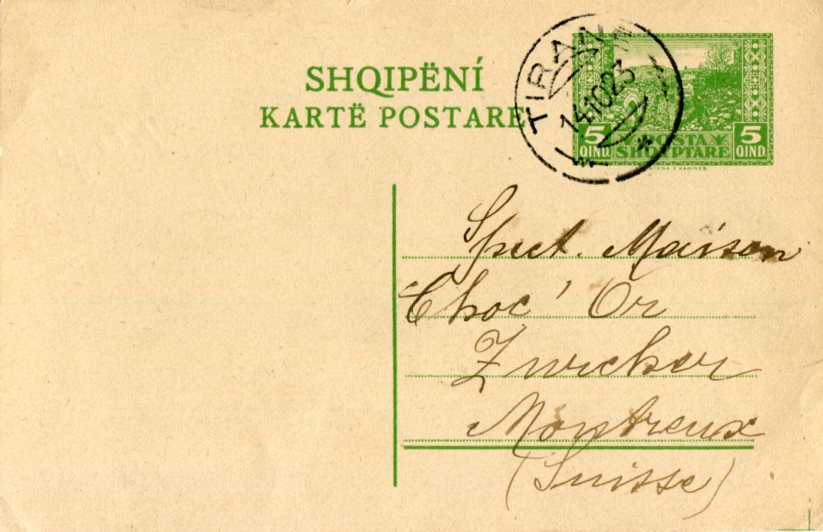 SHQIPËNÍ
KARTË POSTARE
TIRAN
14 10 23
5 QIND. POSTA SHQYPTARE 5 QIND.
Spect. Maison
Choc' Or
Zwicker
Montreux
(Suisse)